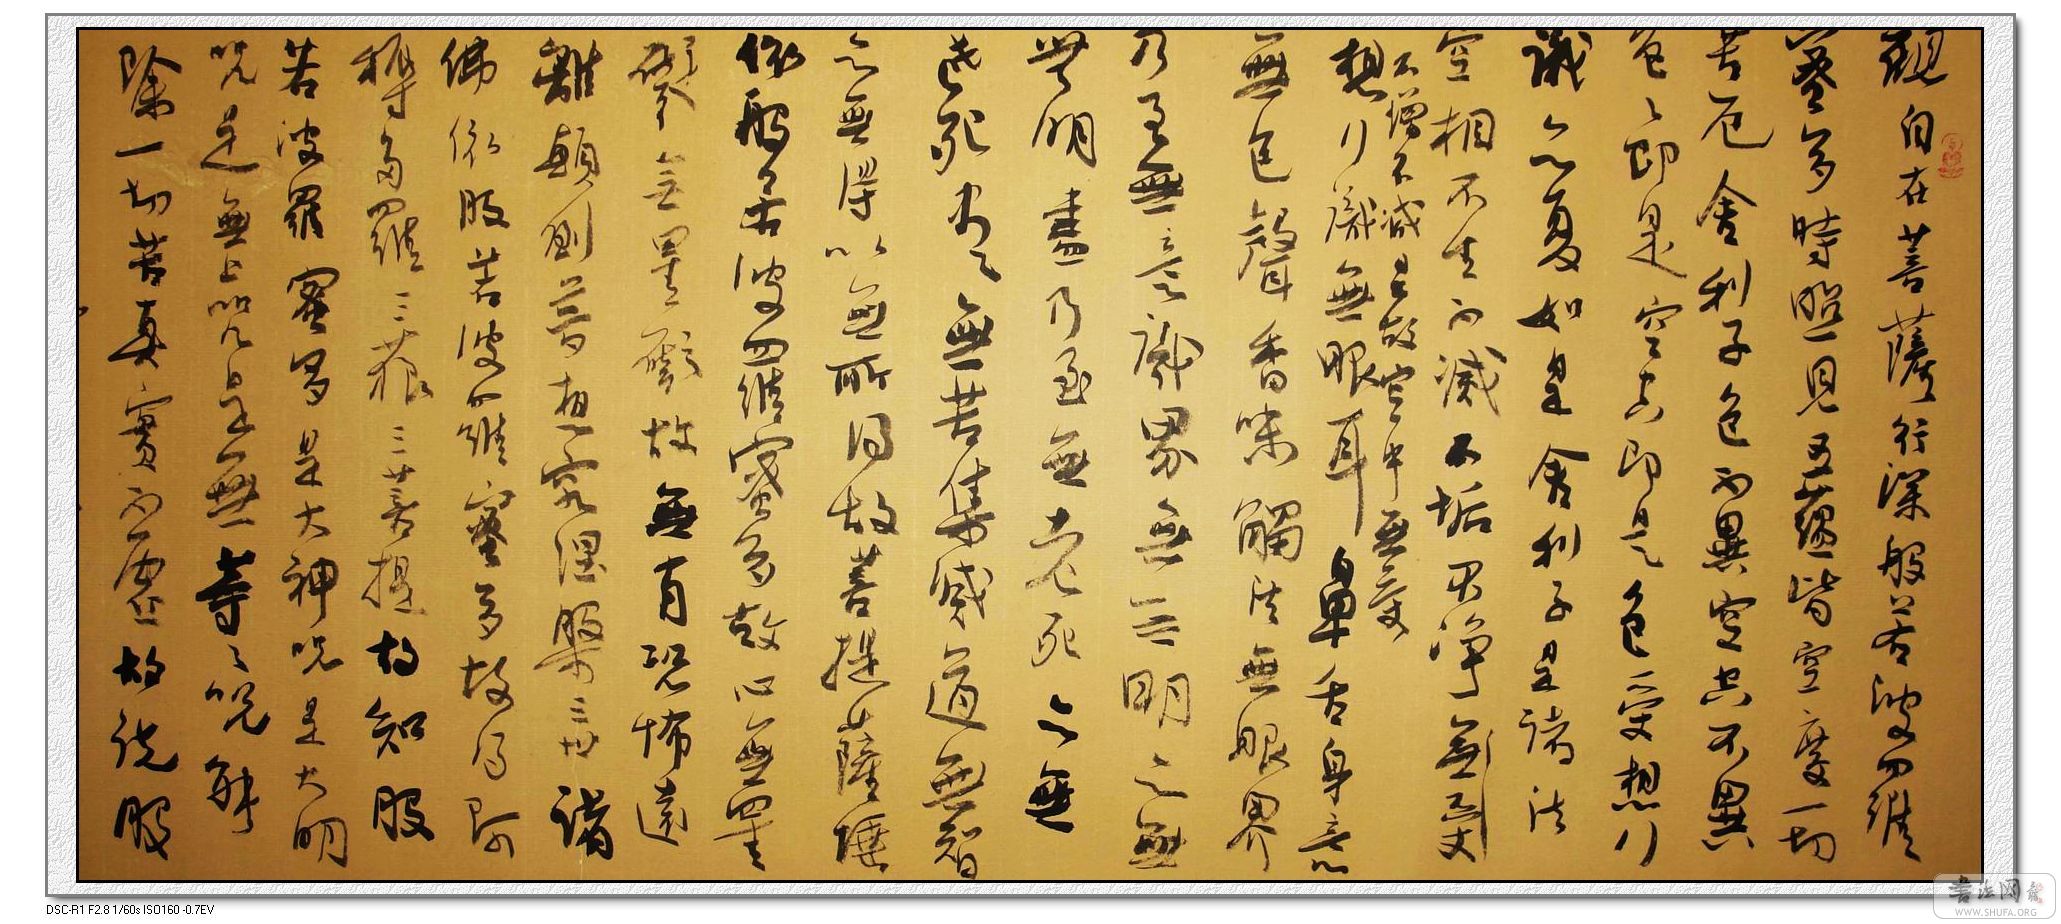 觀自在菩薩行深般若波羅
蜜多時照見五蘊皆空度一切
苦厄舍利子色不異空空不異
色々即是空々即是色受想行
識亦復如是舍利子是諸法
空相不生不滅不垢不淨無受
不增不減是故空中無受
想行識無眼耳鼻舌身意
無色聲香味觸法無眼界
乃至無意識界無無明亦無
無明盡乃至無老死亦無
老死盡無苦集滅道無智
亦無得以無所得故菩提薩埵
依般若波羅蜜多故心無罣
礙無罣礙故無有恐怖遠
離顛倒夢想究涅槃三世諸
佛依般若波羅蜜多故得阿
耨多羅三藐三菩提故知般
若波羅蜜多是大神咒是大明
咒是無上咒是無等々咒能
除一切苦真實不虛故說般
DSC-R1 F2.8 1/60s ISO160 -0.7EV
書法网
WWW.SHUFA.ORG